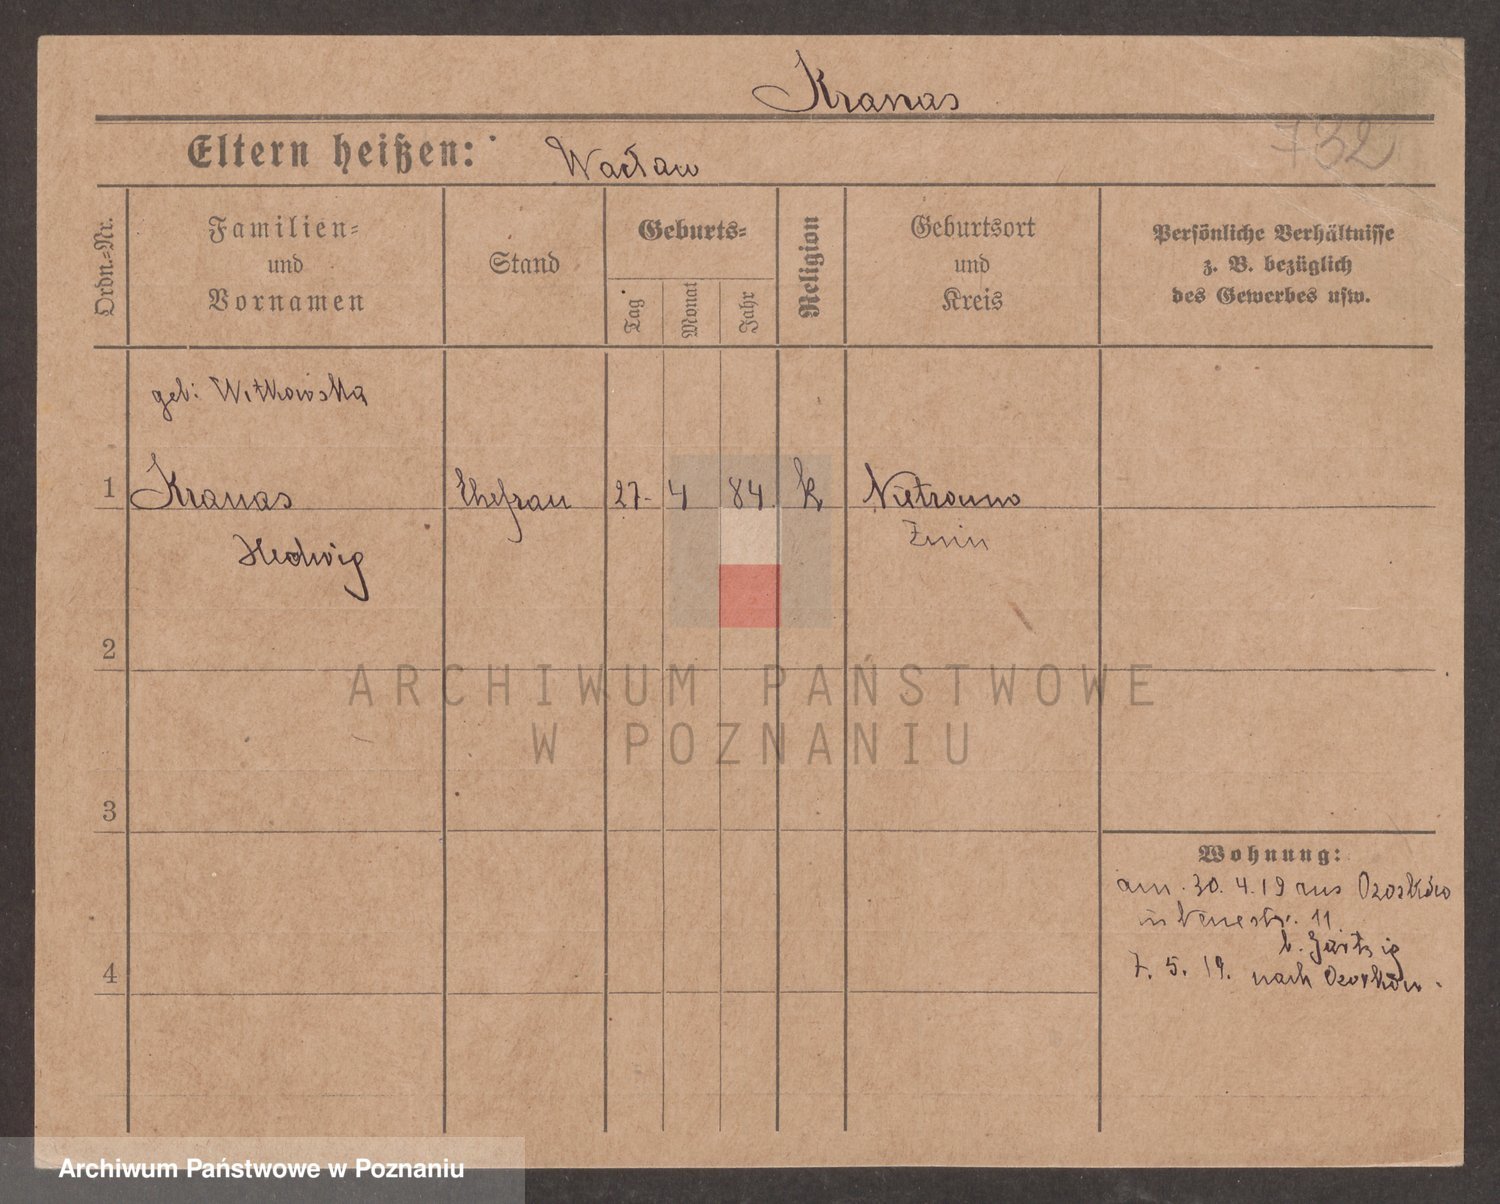 Kranas
732
Eltern heißen: Wacław
Ordn.-Nr.
Familien-
und
Vornamen
Stand
Geburts-
Tag
Monat
Jahr
Religion
Geburtsort
und
Kreis
Persönliche Verhältnisse
z. B. bezüglich
des Gewerbes usw.
geb: Witkowska
1 Kranas Ehefrau 27- 4 84 k
Hedwig Znin
2
ARCHIWUM PAŃSTWOWE
W POZNANIU
3
Wohnung:
am 30. 4. 19 aus Ozorków
in 11
b.
4
7. 5. 19. nach Ozorków.
Archiwum Państwowe w Poznaniu